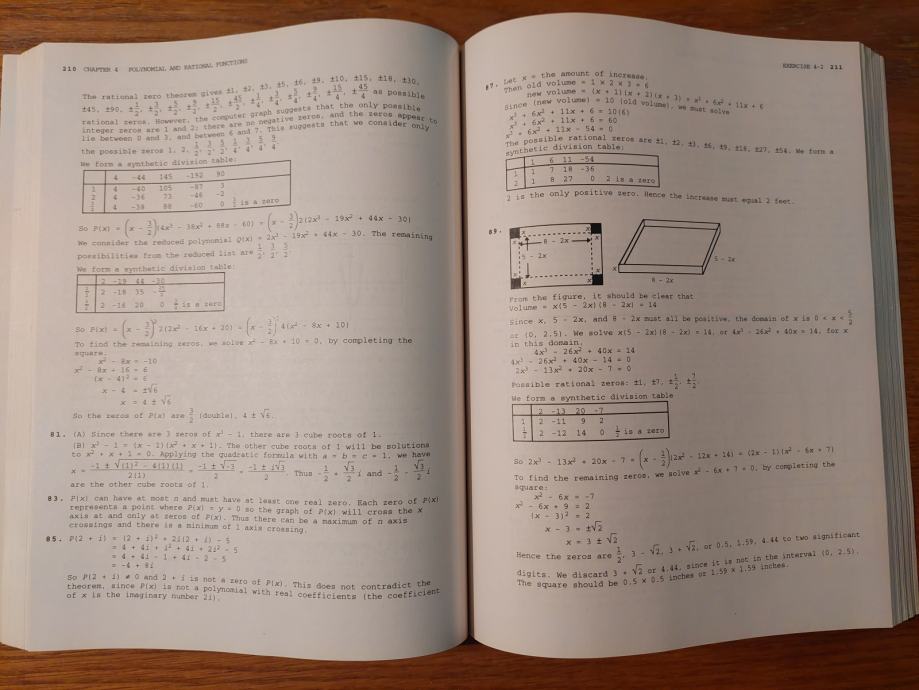 210 CHAPTER 4 POLYNOMIAL AND RATIONAL FUNCTIONS
The rational zero theorem gives ±1, ±2, ±3, ±5, ±6, ±9, ±10, ±15, ±18, ±30,
±45, ±90, ±1/2, ±3/2, ±5/2, ±9/2, ±15/2, ±45/2, ±1/4, ±3/4, ±5/4, ±9/4, ±15/4, ±45/4 as possible
rational zeros. However, the computer graph suggests that the only possible
integer zeros are 1 and 2; there are no negative zeros, and the zeros appear to
lie between 0 and 3, and between 6 and 7. This suggests that we consider only
the possible zeros 1, 2, 1/2, 3/2, 5/2, 1/4, 3/4, 5/4, 9/4
We form a synthetic division table:
4 -44 145 -192 90
1 4 -40 105 -87 3
2 4 -36 73 -46 -2
3/2 4 -38 88 -60 0 3/2 is a zero
So P(x) = (x - 3/2)(4x³ - 38x² + 88x - 60) = (x - 3/2)2(2x³ - 19x² + 44x - 30)
We consider the reduced polynomial Q(x) = 2x³ - 19x² + 44x - 30. The remaining
possibilities from the reduced list are 1/2, 3/2, 5/2.
We form a synthetic division table:
2 -19 44 -30
1/2 2 -18 35 -25/2
3/2 2 -16 20 0 3/2 is a zero
So P(x) = (x - 3/2)² 2(2x² - 16x + 20) = (x - 3/2)² 4(x² - 8x + 10)
To find the remaining zeros, we solve x² - 8x + 10 = 0, by completing the
square.
x² - 8x = -10
x² - 8x + 16 = 6
(x - 4)² = 6
x - 4 = ±√6
x = 4 ± √6
So the zeros of P(x) are 3/2 (double), 4 ± √6.
81. (A) Since there are 3 zeros of x³ - 1, there are 3 cube roots of 1.
(B) x³ - 1 = (x - 1)(x² + x + 1). The other cube roots of 1 will be solutions
to x² + x + 1 = 0. Applying the quadratic formula with a = b = c = 1, we have
x = (-1 ± √((1)² - 4(1)(1)))/2(1) = (-1 ± √-3)/2 = (-1 ± i√3)/2. Thus -1/2 + √3/2 i and -1/2 - √3/2 i
are the other cube roots of 1.
83. P(x) can have at most n and must have at least one real zero. Each zero of P(x)
represents a point where P(x) = y = 0 so the graph of P(x) will cross the x
axis at and only at zeros of P(x). Thus there can be a maximum of n axis
crossings and there is a minimum of 1 axis crossing.
85. P(2 + i) = (2 + i)² + 2i(2 + i) - 5
= 4 + 4i + i² + 4i + 2i² - 5
= 4 + 4i - 1 + 4i - 2 - 5
= -4 + 8i
So P(2 + i) ≠ 0 and 2 + i is not a zero of P(x). This does not contradict the
theorem, since P(x) is not a polynomial with real coefficients (the coefficient
of x is the imaginary number 2i).
EXERCISE 4-2 211
87. Let x = the amount of increase.
Then old volume = 1 × 2 × 3 = 6
new volume = (x + 1)(x + 2)(x + 3) = x³ + 6x² + 11x + 6
Since (new volume) = 10 (old volume), we must solve
x³ + 6x² + 11x + 6 = 10(6)
x³ + 6x² + 11x + 6 = 60
x³ + 6x² + 11x - 54 = 0
The possible rational zeros are ±1, ±2, ±3, ±6, ±9, ±18, ±27, ±54. We form a
synthetic division table:
1 6 11 -54
1 1 7 18 -36
2 1 8 27 0 2 is a zero
2 is the only positive zero. Hence the increase must equal 2 feet.
89.
x x
x 8 - 2x x
5 - 2x
x x
x x
5 - 2x
x
8 - 2x
From the figure, it should be clear that
Volume = x(5 - 2x)(8 - 2x) = 14
Since x, 5 - 2x, and 8 - 2x must all be positive, the domain of x is 0 < x < 5/2
or (0, 2.5). We solve x(5 - 2x)(8 - 2x) = 14, or 4x³ - 26x² + 40x = 14, for x
in this domain.
4x³ - 26x² + 40x = 14
4x³ - 26x² + 40x - 14 = 0
2x³ - 13x² + 20x - 7 = 0
Possible rational zeros: ±1, ±7, ±1/2, ±7/2.
We form a synthetic division table
2 -13 20 -7
1 2 -11 9 2
1/2 2 -12 14 0 1/2 is a zero
So 2x³ - 13x² + 20x - 7 = (x - 1/2)(2x² - 12x + 14) = (2x - 1)(x² - 6x + 7)
To find the remaining zeros, we solve x² - 6x + 7 = 0, by completing the
square:
x² - 6x = -7
x² - 6x + 9 = 2
(x - 3)² = 2
x - 3 = ±√2
x = 3 ± √2
Hence the zeros are 1/2, 3 - √2, 3 + √2, or 0.5, 1.59, 4.44 to two significant
digits. We discard 3 + √2 or 4.44, since it is not in the interval (0, 2.5).
The square should be 0.5 × 0.5 inches or 1.59 × 1.59 inches.